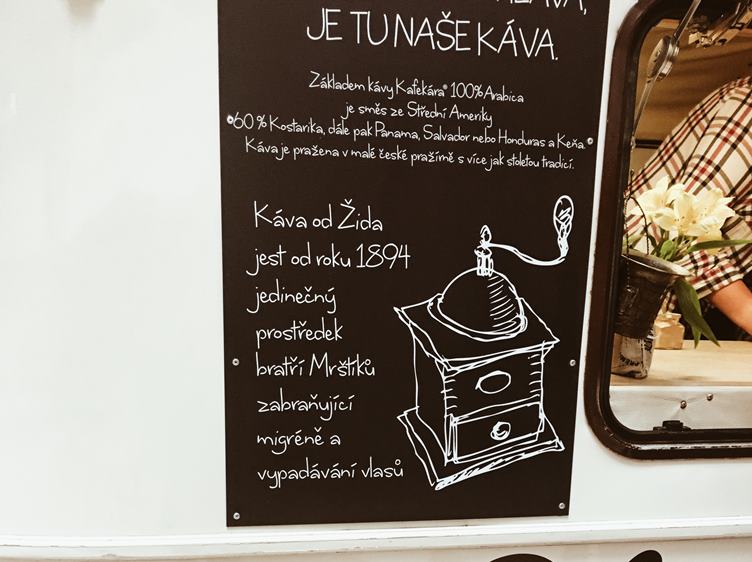 JE TU NAŠE KÁVA.
Základem kávy Kafekára® 100% Arabica
je směs ze Střední Ameriky
60 % Kostarika, dále pak Panama, Salvador nebo Honduras a Keňa.
Káva je pražena v malé české pražírně s více jak stoletou tradicí.
Káva od Žida
jest od roku 1894
jedinečný
prostředek
bratří Mrštíků
zabraňující
migréně a
vypadávání vlasů